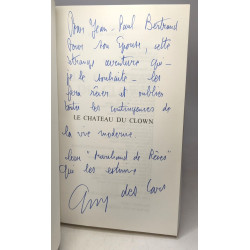 Pour Jean-Paul Bertrand
pour son épouse, cette
étrange aventure qui
je le souhaite - les
fera rêver et oublier
toutes les contingences de
LE CHATEAU DU CLOWN
la vie moderne.
leur "marchand de Rêves"
qui les estime
Guy des Cars